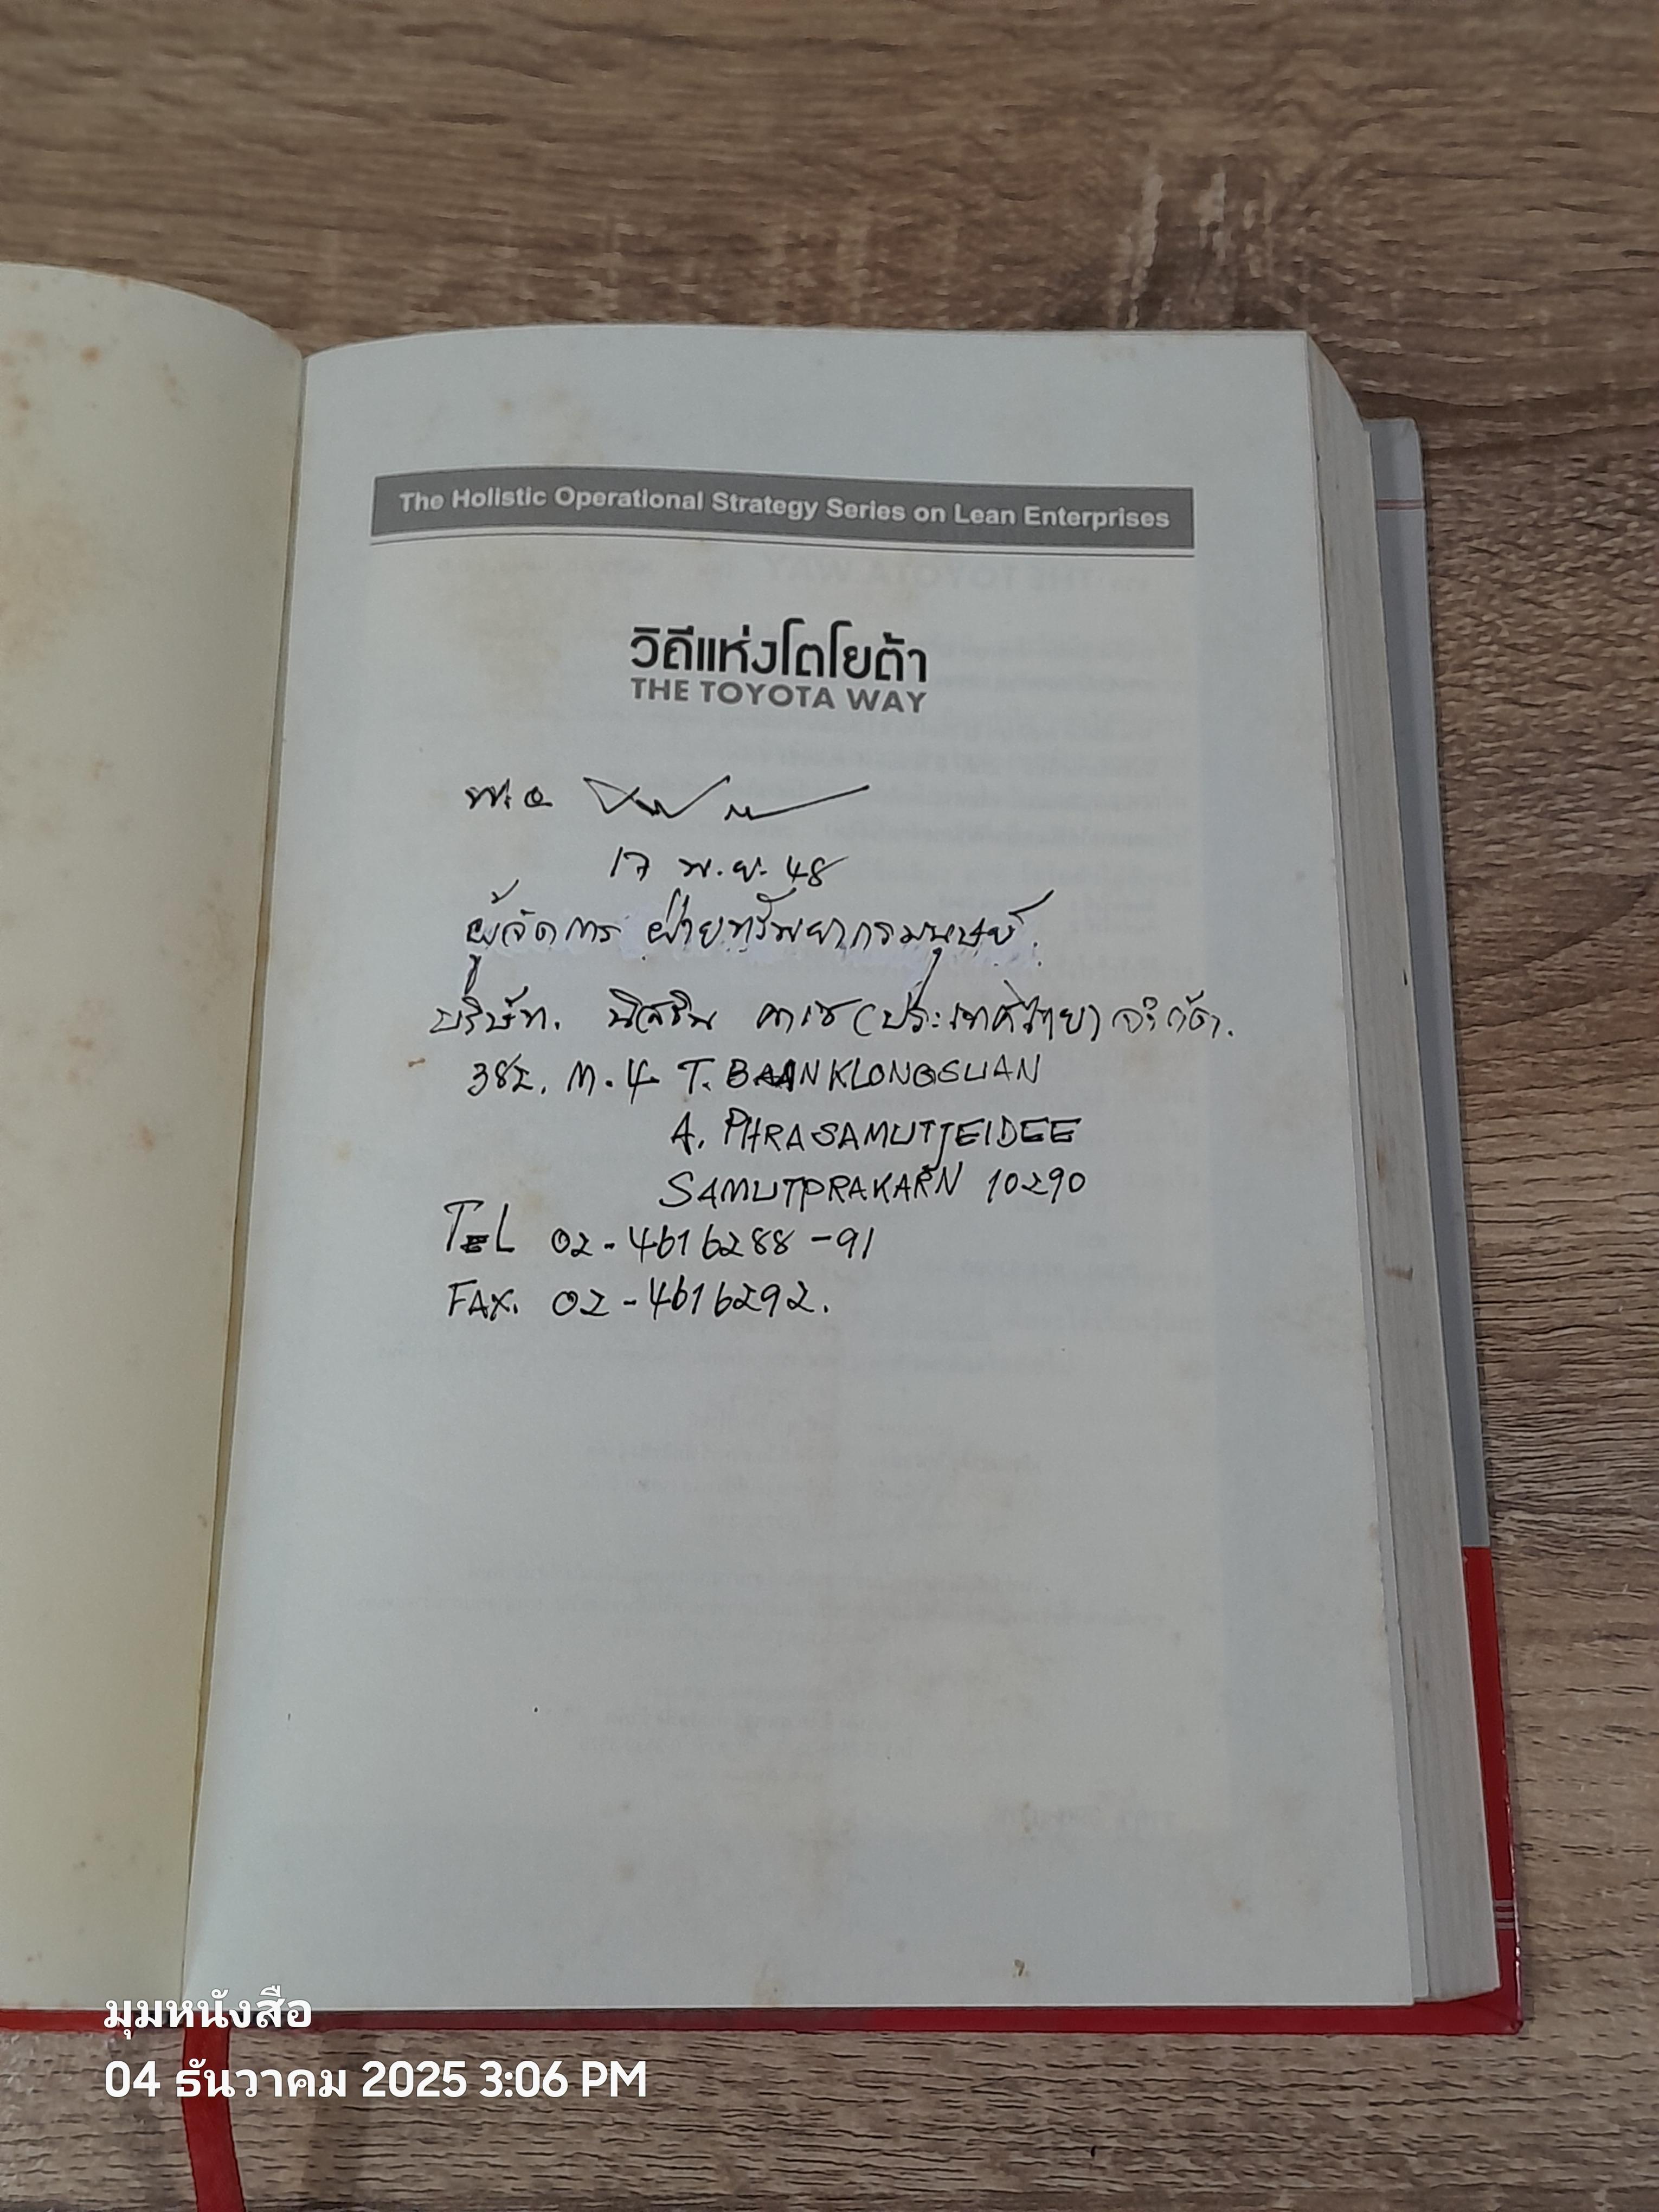 The Holistic Operational Strategy Series on Lean Enterprises
วิถีแห่งโตโยต้า
THE TOYOTA WAY
พ.อ
17 พ.ย. 48
ผู้จัดการ ฝ่ายทรัพยากรมนุษย์.
บริษัท. นิสชิน คาเซ (ประเทศไทย) จำกัด.
382. M.4 T. BAANKLONGSUAN
A. PHRASAMUTJEIDEE
SAMUTPRAKARN 10290
TEL 02-4616288-91
FAX. 02-4616292.
มุมหนังสือ
04 ธันวาคม 2025 3:06 PM